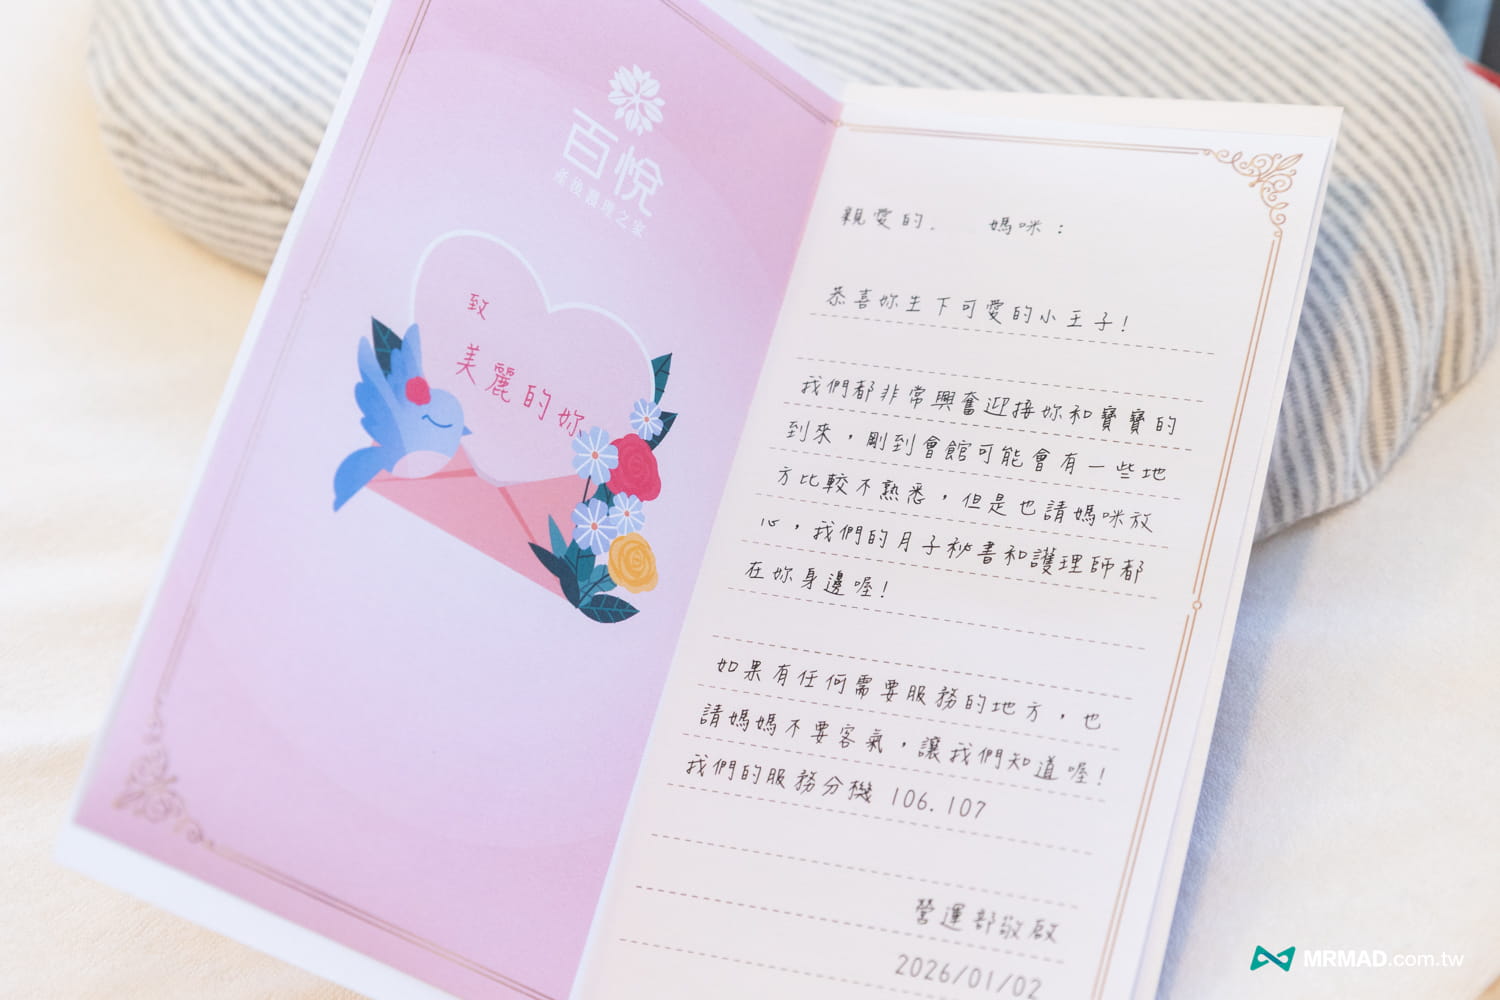 百悅
產後護理之家
致
美麗的妳
親愛的. 媽咪：
恭喜妳生下可愛的小王子!
我們都非常興奮迎接妳和寶寶的
到來，剛到會館可能會有一些地
方比較不熟悉，但是也請媽咪放
心，我們的月子秘書和護理師都
在妳身邊喔!
如果有任何需要服務的地方，也
請媽媽不要客氣，讓我們知道喔!
我們的服務分機 106.107
營運部敬啟
2026/01/02
MRMAD.com.tw